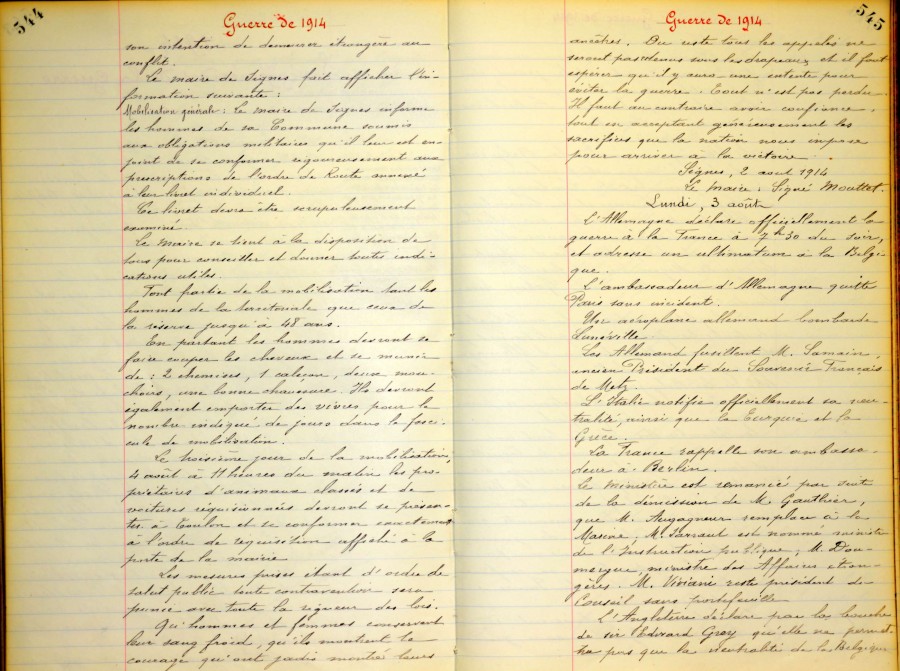 544
Guerre de 1914
son intention de demeurer étrangère au
conflit.
Le maire de Signes fait afficher l'in-
formation suivante :
Mobilisation générale : Le maire de Signes informe
les hommes de sa Commune soumis
aux obligations militaires qu'il leur est en-
joint de se conformer rigoureusement aux
prescriptions de l'ordre de Route annexé
à leur livret individuel.
Ce livret devra être scrupuleusement
examiné.
Le Maire se tient à la disposition de
tous pour conseiller et donner toutes indi-
cations utiles.
Font partie de la mobilisation tous les
hommes de la territoriale que ceux de
la réserve jusqu'à 48 ans.
En partant les hommes devront se
faire couper les cheveux et se munir
de : 2 chemises, 1 caleçon, deux mou-
choirs, une bonne chaussure. Ils devront
également emporter des vivres pour le
nombre indiqué de jours dans le fasci-
cule de mobilisation.
Le troisième jour de la mobilisation,
4 août à 11 heures du matin les pro-
priétaires d'animaux classés et de
voitures requisionnées devront se présen-
ter à Toulon et se conformer exactement
à l'ordre de réquisition affiché à la
porte de la mairie
Les mesures prises étant d'ordre de
salut public toute contravention sera
punie avec toute la rigueur des lois.
Qu'hommes et femmes conservent
leur sang froid, qu'ils montrent le
courage qu'ont jadis montré leurs
545
Guerre de 1914
ancêtres. Du reste tous les appelés ne
seront pas retenus sous les drapeaux et il faut
espérer qu'il y aura une entente pour
éviter la guerre. Tout n'est pas perdu.
Il faut au contraire avoir confiance,
tout en acceptant généreusement les
sacrifices que la nation nous impose
pour arriver à la victoire.
Signes, 2 août 1914
Le Maire : Signé Mouttet.
Lundi, 3 août
L'Allemagne déclare officiellement la
guerre à la France à 7h30 du soir,
et adresse un ultimatum à la Belgi-
que.
L'ambassadeur d'Allemagne quitte
Paris sans incident.
Un aéroplane allemand bombarde
Lunéville
Les Allemand fusillent M. Samain,
ancien Président du Souvenir Français
de Metz.
L'Italie notifie officiellement sa neu-
tralité, ainsi que la Turquie et la
Grèce.
La France rappelle son ambassa-
deur à Berlin.
Le ministère est remanié par suite
de la démission de M. Gauthier,
que M. Augagneur remplace à la
Marine, M. Sarraut est nommé ministre
de l'Instruction publique, M. Dou-
mergue, ministre des Affaires étran-
gères. M. Viviani reste président du
Conseil sans portefeuille
L'Angleterre déclare par la bouche
de sir Edward Grey qu'elle ne permet-
tra pas que la neutralité de la Belgique